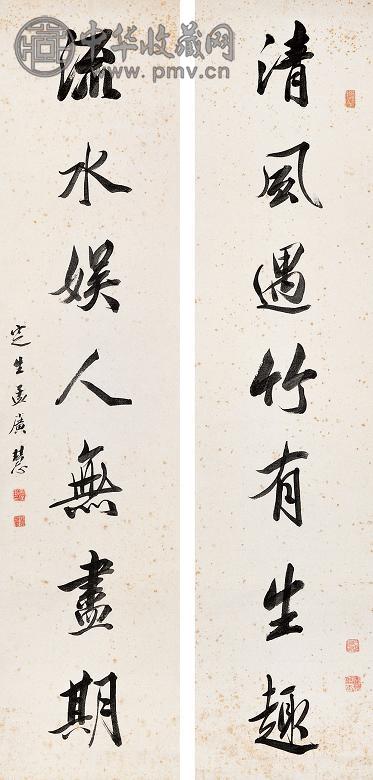 清風遇竹有生趣
流水娱人無盡期
定生孟廣慧
中华收藏网
www.pmv.cn